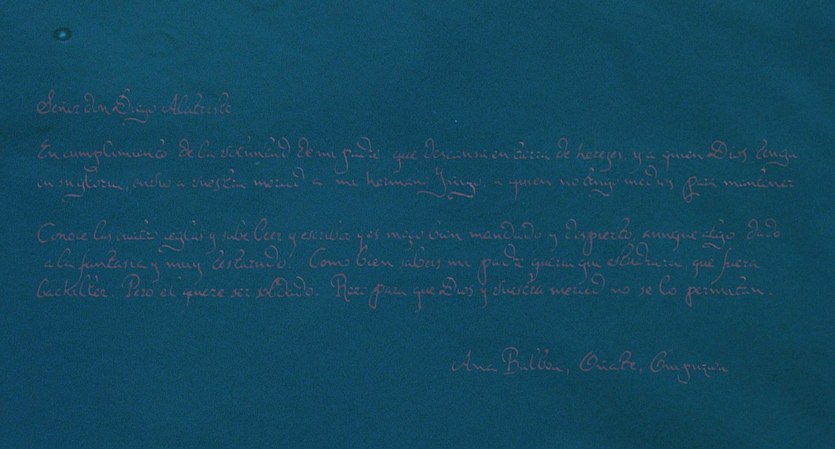 Señor don Diego Alatriste
En cumplimiento de la voluntad de mi padre que descansa en tierra de herejes, y a quien Dios tenga
en su gloria, envío a vuestra merced a mi hermano Íñigo, a quien no tengo medios para mantener
Conoce las cuatro reglas y sabe leer y escribir y es mozo bien mandado y despierto, aunque algo dado
a la fantasia y muy testarudo. Como bien sabeis mi padre queria que estudiara que fuera
bachiller. Pero el quiere ser soldado. Rezo para que Dios y vuestra merced no se lo permitan.
Ana Balboa, Oñate, Guipuzcoa